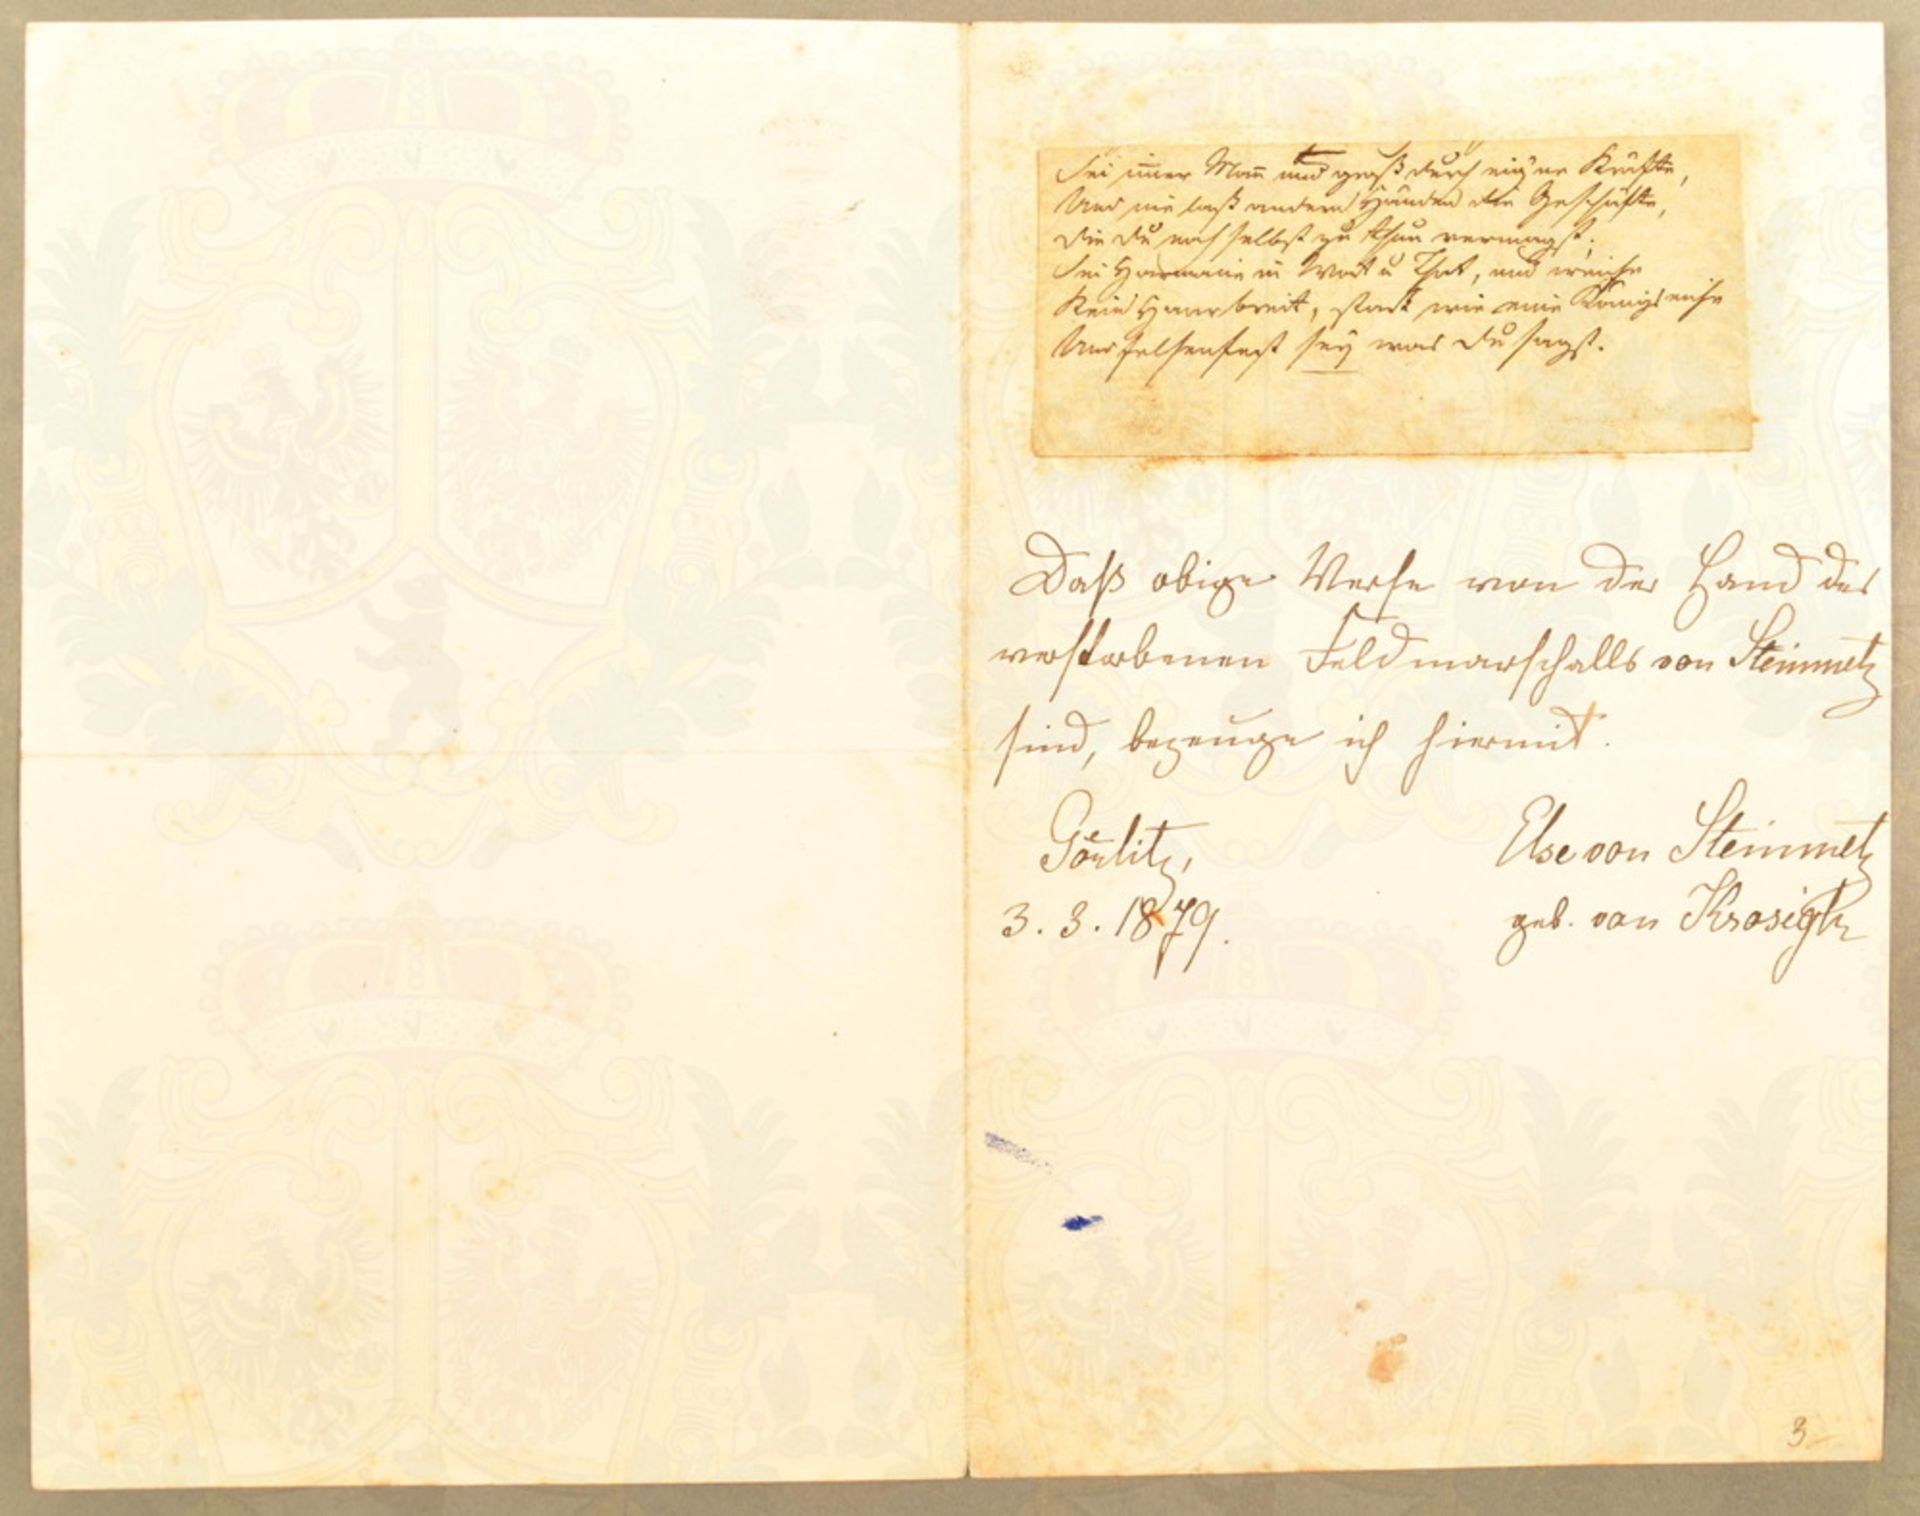 Sei im̅er Man̅ und groß durch eig'ne Kräfte,
Und nie laß andern Händen die Geschäfte,
Die Du noch selbst zu thun vermagst;
Sei Harmonie in Wort u That, und weiche
Kein Haarbreit, stark wie eine Königseiche
Und felsenfest sey was Du sagst.
Daß obige Verse von der Hand des
verstorbenen Feldmarschalls von Steinmetz
sind, bezeuge ich hiermit.
Görlitz,
3. 3. 1879.
Else von Steinmetz
geb. von Krosigk
3